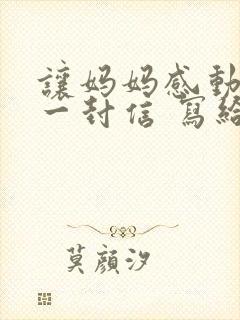 讓妈妈感動
一封信 寫給
莫顏汐